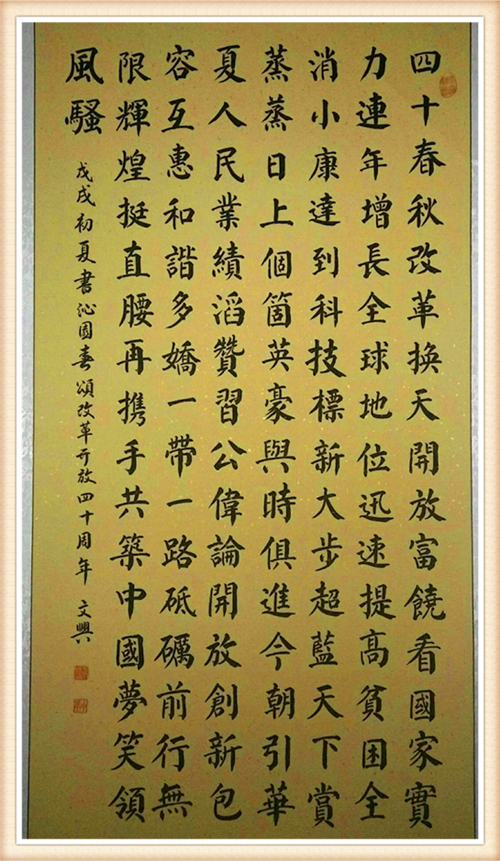 四十春秋改革換天開放富饒看國家實
力連年增長全球地位迅速提高貧困全
消小康達到科技標新大步超藍天下賞
蒸蒸日上個箇英豪與時俱進今朝引華
夏人民業績滔贊習公偉論開放創新包
容互惠和諧多嬌一帶一路砥礪前行無
限輝煌挺直腰再攜手共築中國夢笑領
風騷
戊戌初夏書沁園春頌改革開放四十周年 文興